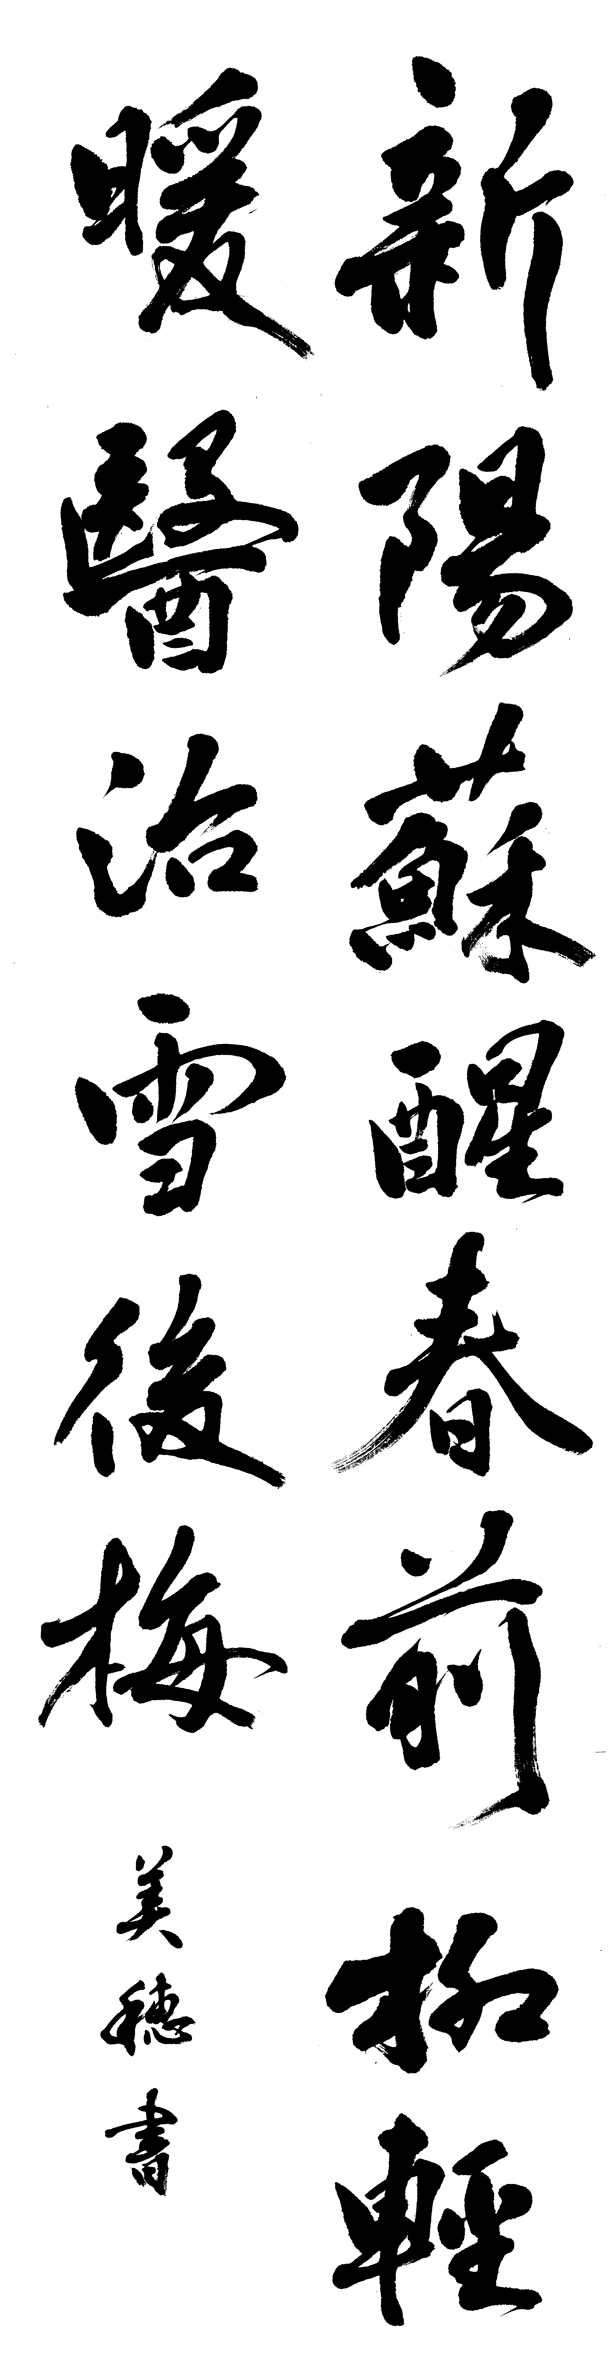 新陽蘇醒春前柳輕
暖醫治雪後梅
美穂書